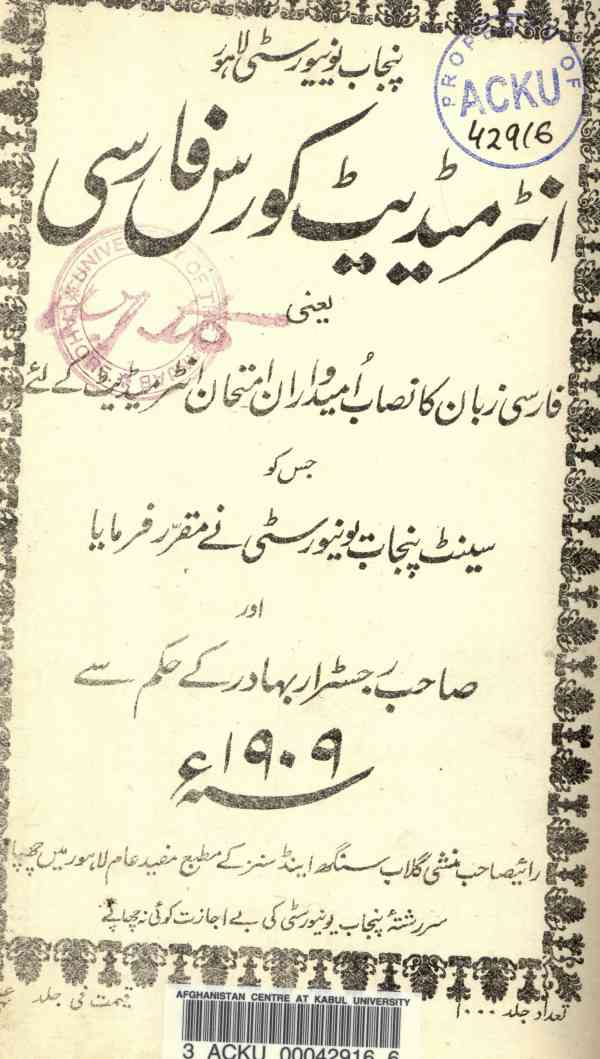 پنجاب یونیورسٹی لاہور
PROPERTY OF
ACKU
42916
انٹرمیڈیٹ کورس فارسی
یعنی
فارسی زبان کا نصاب اُمیدواران امتحان انٹرمیڈیٹ کے لئے
جس کو
سینٹ پنجاب یونیورسٹی نے مقرّر فرمایا
اور
صاحب رجسٹرار بہادر کے حکم سے
۱۹۰۹ء
رائیصاحب منشی گلاب سنگھ اینڈ سنز کے مطبع مفید عام لاہور میں چھپا
سررشتۂ پنجاب یونیورسٹی کی بے اجازت کوئی نہ چھاپے
تعداد جلد ۱۰۰۰
قیمت فی جلد
AFGHANISTAN CENTRE AT KABUL UNIVERSITY
3 ACKU 00042916 6